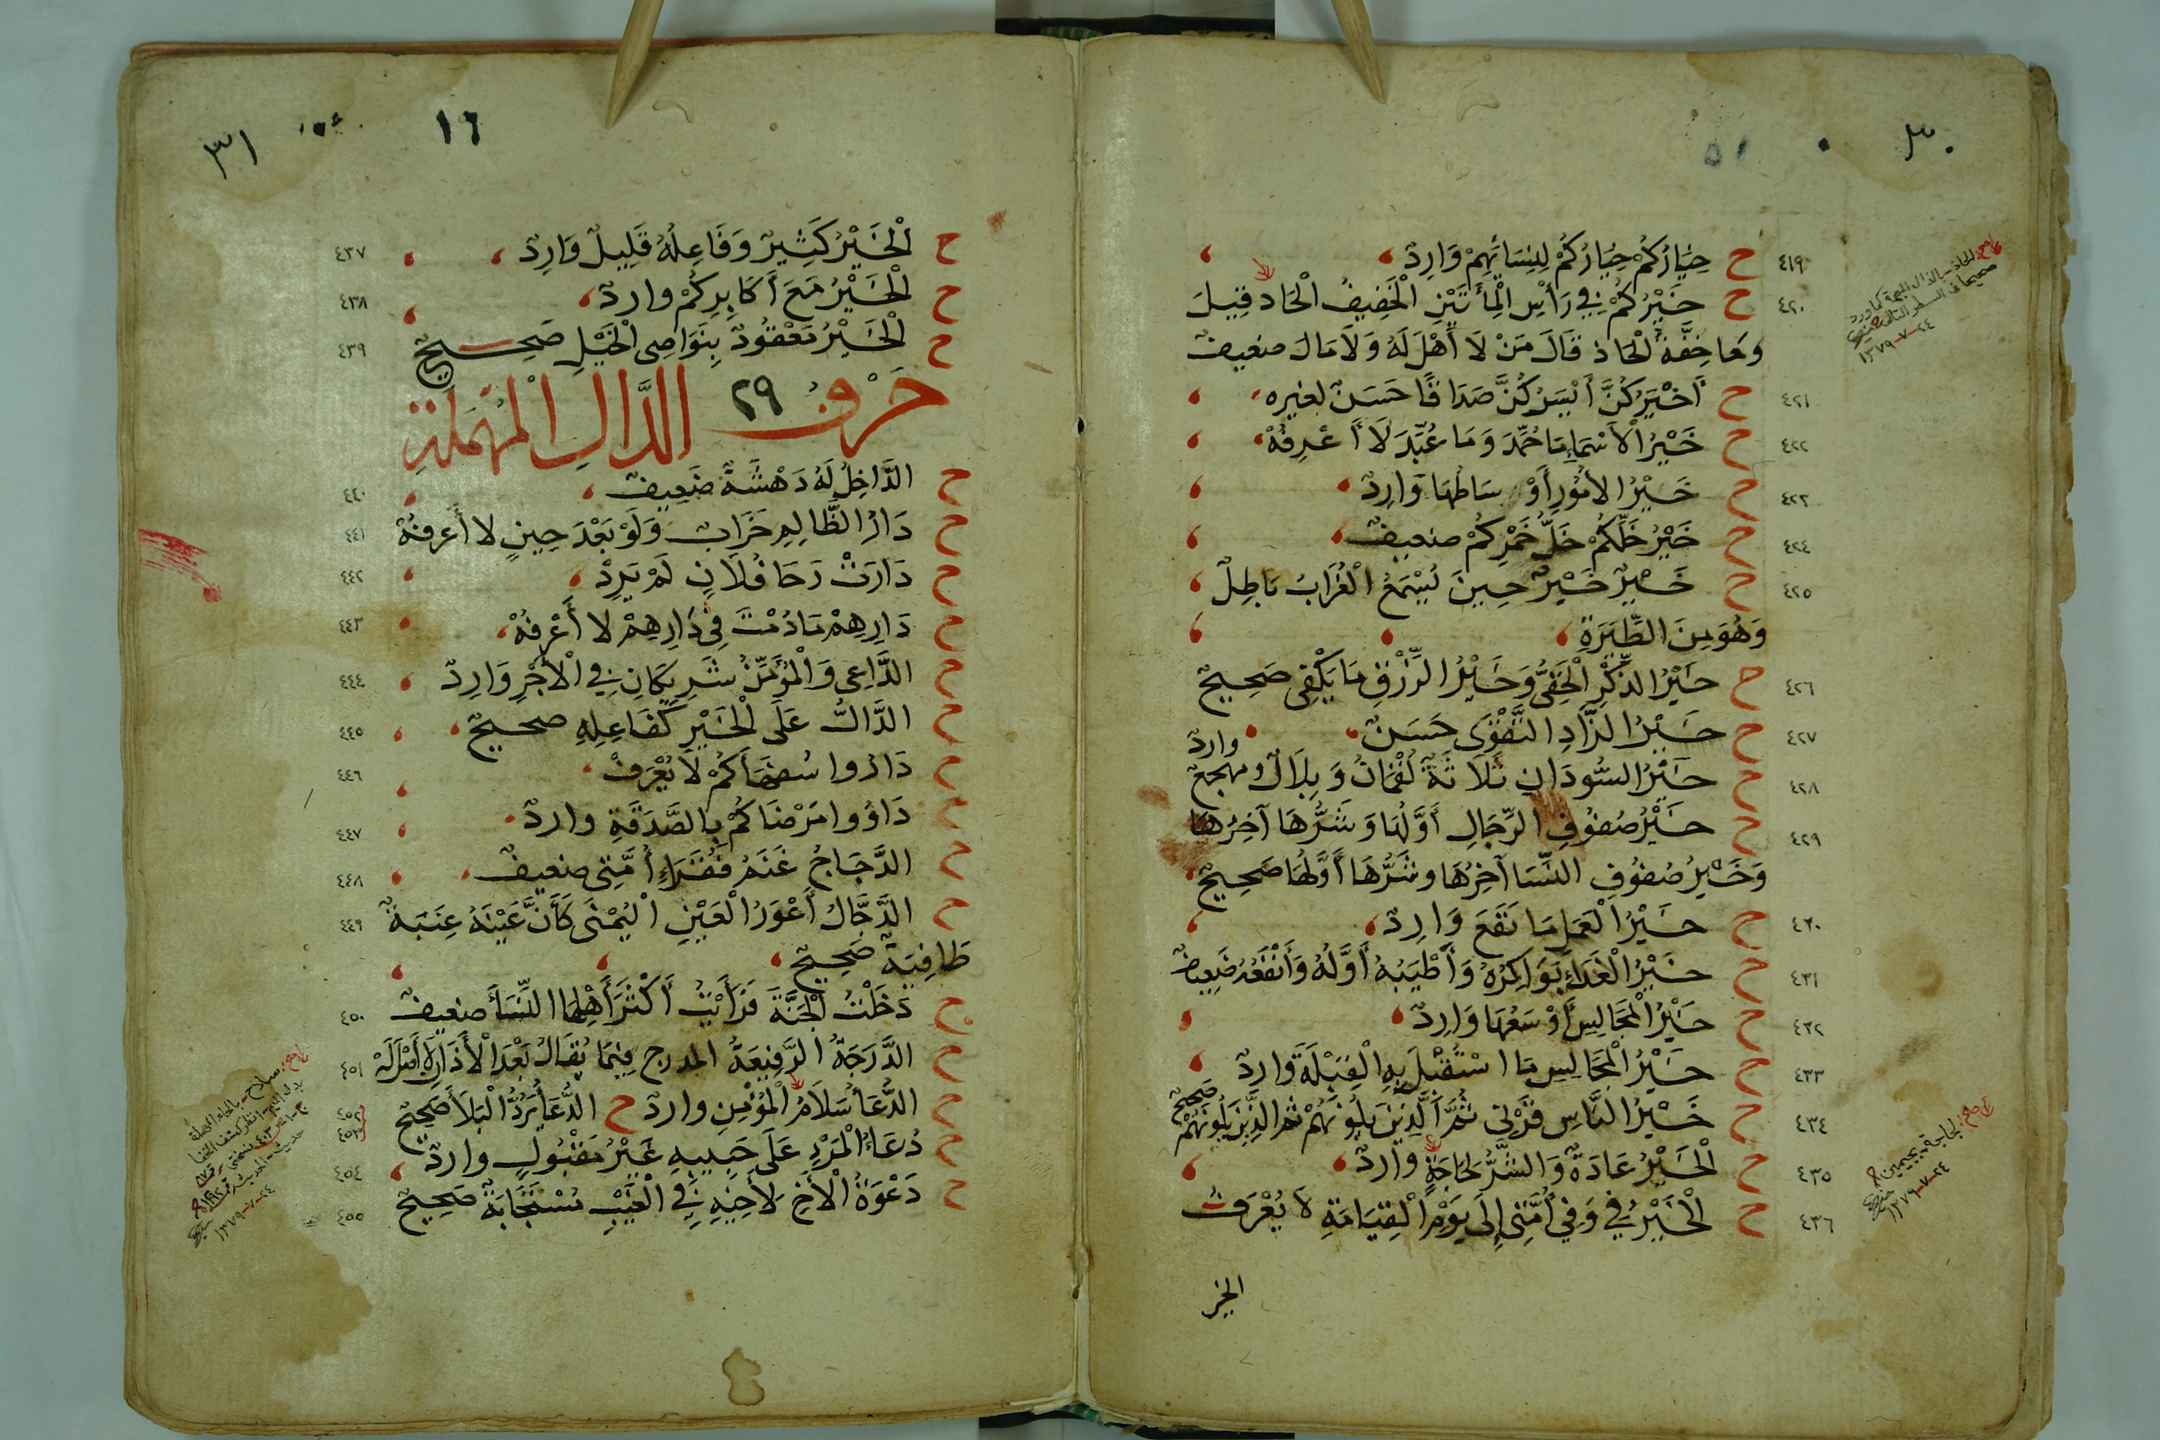 ٣٠
٥١
٤١٩ ح خِيَارُكُمْ خِيَارُكُمْ لِنِسَائِهِمْ وَارِدٌ
٤٢٠ ح خَيْرُكُمْ فِي رَأْسِ الْمِأَتَيْنِ الْخَفِيفُ الْحَاد قِيلَ
وَمَا خِفَّةُ الْحَاذ قَالَ مَنْ لَا أَهْلَ لَهُ وَلَا مَالَ ضعيفٌ
٤٢١ ح أَخْيَرُكُنَّ أَيْسَرُكُنَّ صَدَاقًا حَسَنٌ لغيره
٤٢٢ ح خَيْرُ الْأَسْمَاءِ مَا حُمِّدَ وَمَا عُبِّدَ لَا أَعْرِفُهُ
٤٢٣ ح خَيْرُ الأُمُورِ أَوْسَاطُهَا وَارِدٌ
٤٢٤ ح خَيْرُ خَلِّكُمْ خَلُّ خَمْرِكُمْ ضعيفٌ
٤٢٥ ح خَيْرٌ خَيْرٌ حِينَ يُسْمَعُ الْغُرَابُ بَاطِلٌ
وَهُوَ مِنَ الطِّيَرَةِ
٤٢٦ ح خَيْرُ الذِّكْرِ الْخَفِيُّ وَخَيْرُ الرِّزْقِ مَا يَكْفِي صَحِيحٌ
٤٢٧ ح خَيْرُ الزَّادِ التَّقْوَى حَسَنٌ
٤٢٨ ح خَيْرُ السُّودَانِ ثَلَاثَةٌ لُقْمَانُ وَبِلَالٌ ومهجعٌ واردٌ
٤٢٩ ح خَيْرُ صُفُوفِ الرِّجَالِ أَوَّلُهَا وَشَرُّهَا آخِرُهَا
وَخَيْرُ صُفُوفِ النِّسَا آخِرُهَا وشَرُّهَا أَوَّلُهَا صَحِيحٌ
٤٣٠ ح خَيْرُ الْعَمَلِ مَا نَفَعَ وَارِدٌ
٤٣١ ح خَيْرُ الْغَدَاءِ بَوَاكِرُهُ وَأَطْيَبُهُ أَوَّلُهُ وَأَنْفَعُهُ ضَعِيفٌ
٤٣٢ ح خَيْرُ الْمَجَالِسِ أَوْسَعُهَا وَارِدٌ
٤٣٣ ح خَيْرُ الْمَجَالِسِ مَا اسْتُقْبِلَ بِهِ الْقِبْلَةَ وَارِدٌ
٤٣٤ ح خَيْرُ النَّاسِ قَرْنِي ثُمَّ الَّذِينَ يَلُونَهُمْ ثُمَّ الَّذِينَ يَلُونَهُمْ صَحِيحٌ
٤٣٥ ح الْخَيْرُ عَادَةٌ وَالشَّرُّ لحَاجَةٍ وَارِدٌ
٤٣٦ ح الْخَيْرُ فِيَّ وَفِي أُمَّتِي إِلَى يَوْمِ الْقِيَامَةِ لَا يُعْرَفُ
الخير
٣١
١٦
ح الْخَيْرُ كَثِيرٌ وَفَاعِلُهُ قَلِيلٌ وَارِدٌ ٤٣٧
ح الْخَيْرُ مَعَ أَكَابِرِكُمْ وارِدٌ ٤٣٨
ح الْخَيْرُ مَعْقُودٌ بِنَوَاصِى الْخَيْلِ صَحِيحٌ ٤٣٩
حَرْفُ ٢٩ الدَّالِ الْمُهْمَلَةِ
ح الدَّاخِلُ لَهُ دَهْشَةٌ ضَعِيفٌ ٤٤٠
ح دَارُ الظَّالِمِ خَرَابٌ وَلَوْ بَعْدَ حِينٍ لا أَعرِفُهُ ٤٤١
ح دَارَتْ رَحَا فُلَانٍ لَمْ يَرِدْ ٤٤٢
ح دَارِهِمْ مَا دُمْتَ فِي دَارِهِمْ لا أَعْرِفُهُ ٤٤٣
ح الدَّاعِى وَالْمُؤَمِّنُ شَرِيكَانِ فِي الْأَجْرِ وَارِدٌ ٤٤٤
ح الدَّالُّ عَلَى الْخَيْرِ كَفَاعِلِهِ صحيحٌ ٤٤٥
ح دَارُوا سُفَهَاءَكُمْ لَا يُعْرَفُ ٤٤٦
ح دَاوُوا مَرْضَاكُمْ بِالصَّدَقَةِ واردٌ ٤٤٧
ح الدَّجَاجُ غَنَمُ فُقَرَاءِ أُمَّتِى ضعيفٌ ٤٤٨
ح الدَّجَّالُ أَعْوَرُ الْعَيْنِ الْيُمْنَى كَأَنَّ عَيْنَهُ عِنَبَةٌ ٤٤٩
طَافِيَةٌ صَحِيحٌ
ح دَخَلْتُ الْجَنَّةَ فَرَأَيْتُ أَكْثَرَ أَهْلِهَا النِّسَاءَ ضعيفٌ ٤٥٠
ح الدَّرَجَةُ الرَّفِيعَةُ المدرج فِيمَا يُقَالُ بَعْدَ الْأَذَانِ لَا أَصْلَ لَهُ ٤٥١
ح الدُّعَاءُ سَلَامُ الْمُؤْمِنِ واردٌ ح الدُّعَاءُ يَرُدُّ الْبَلَاءَ صَحِيحٌ ٤٥٢ ٤٥٣
ح دُعَاءُ الْمَرْءِ عَلَى حَبِيبِهِ غَيْرُ مَقْبُولٍ واردٌ ٤٥٤
ح دَعْوَةُ الْأَخِ لأَخِيْهِ فِي الْغَيْبِ مُسْتَجَابَةٌ صَحِيحٌ ٤٥٥